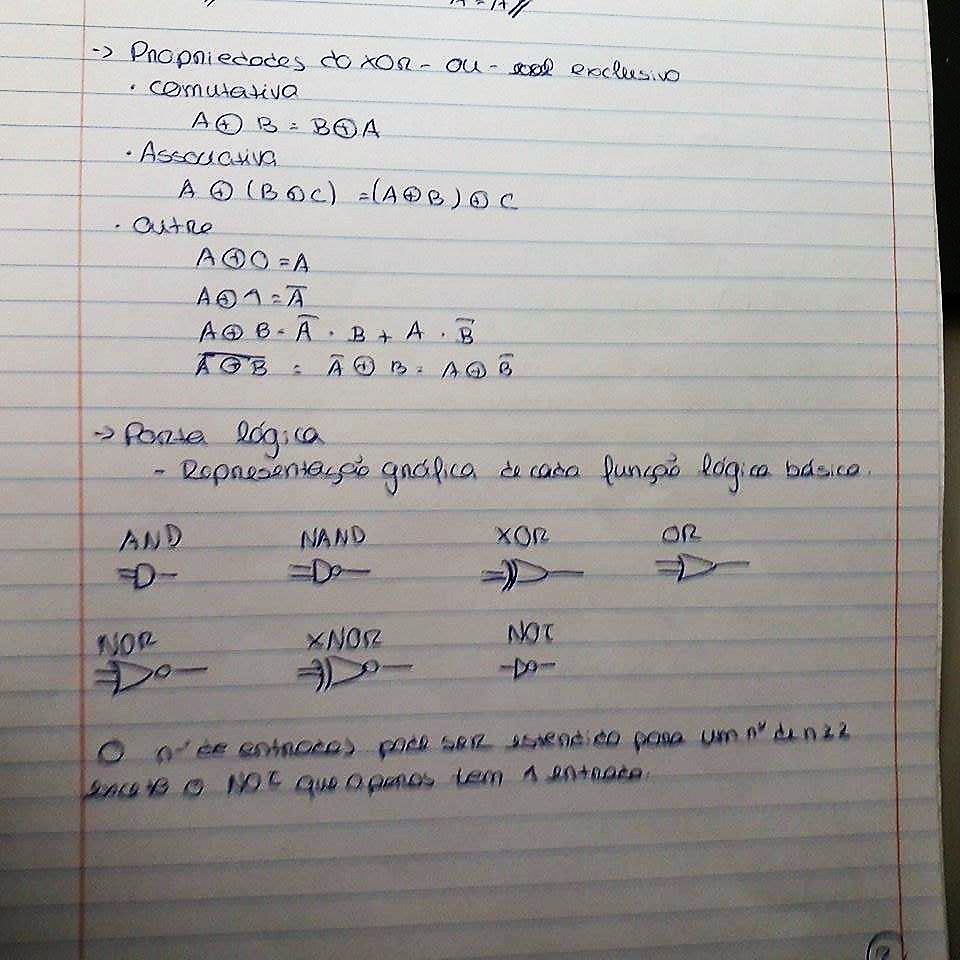 -> Propriedades do XOR - ou - exclusivo
• comutativa
A ⊕ B = B ⊕ A
• Associativa
A ⊕ (B ⊕ C) = (A ⊕ B) ⊕ C
• outre
A ⊕ 0 = A
A ⊕ 1 = A̅
A ⊕ B = A̅ . B + A . B̅
A̅ ̅⊕̅ ̅B̅ = A̅ ⊕ B = A ⊕ B̅
-> Porta lógica
- Representação gráfica de cada função lógica básica.
AND NAND XOR OR
NOR XNOR NOT
O nº de entradas pode ser estendido para um nº de n ≥ 2
exceto o NOT que apenas tem 1 entrada.